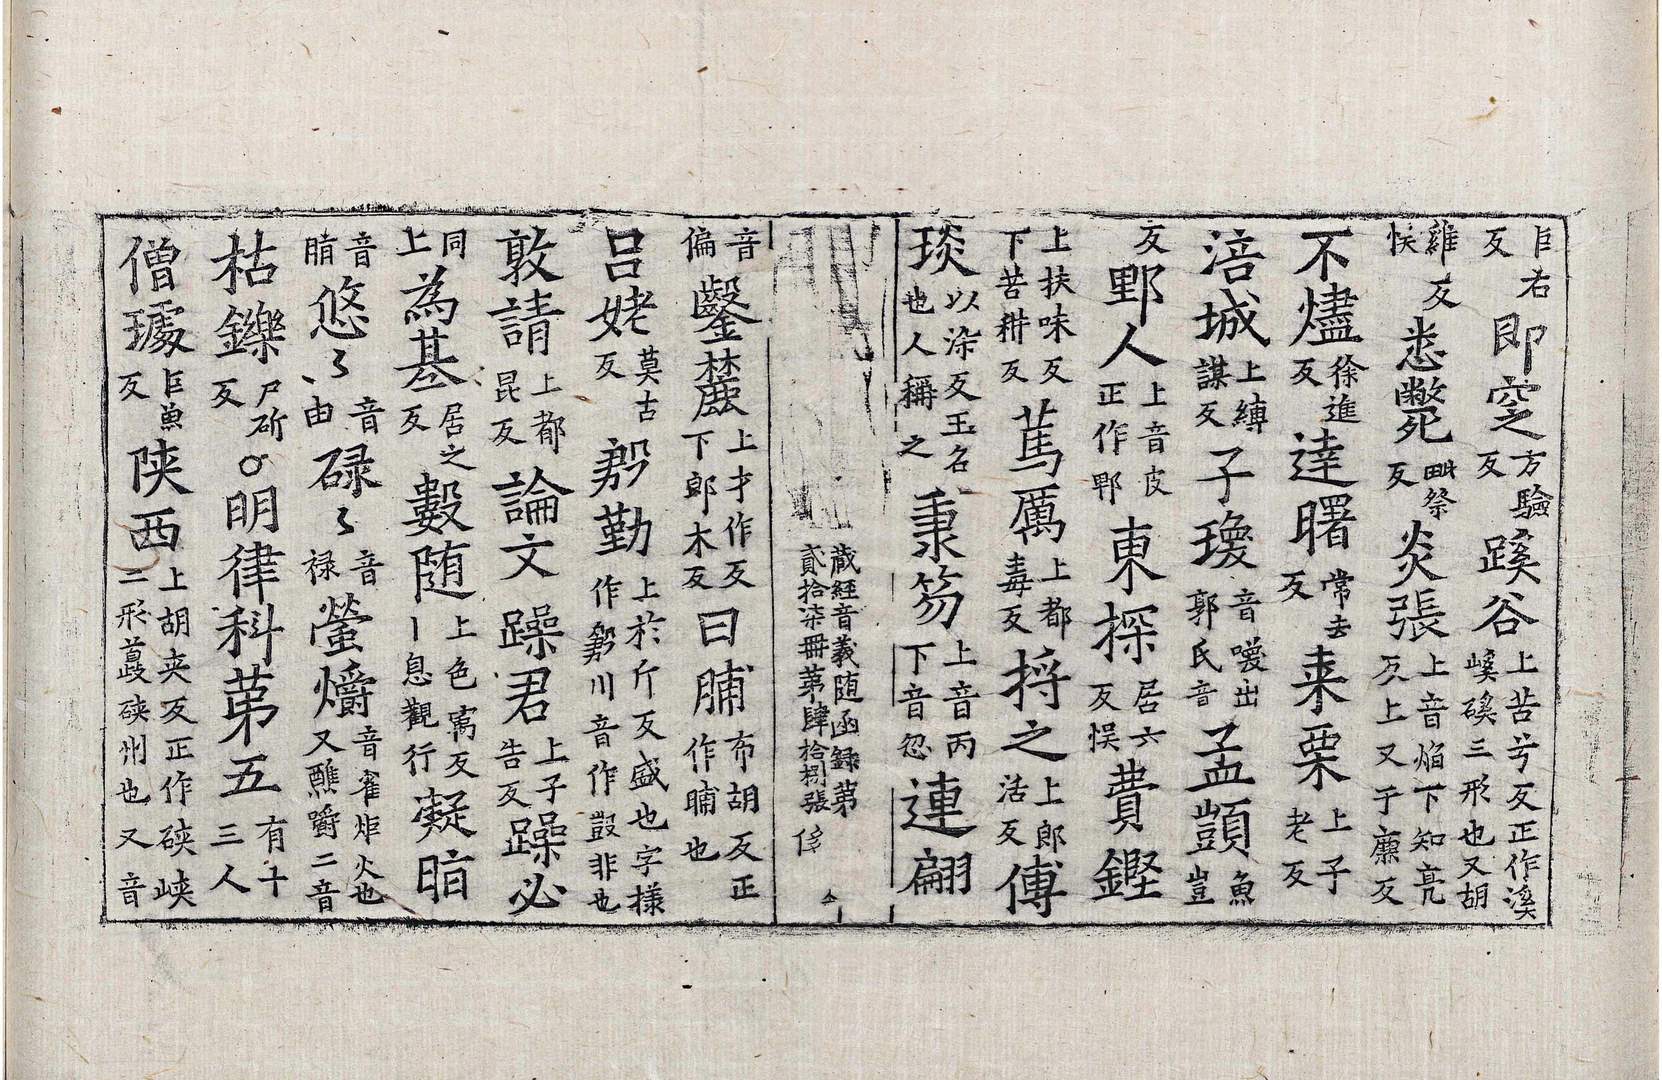 巨右反即窆方驗反蹊谷上苦兮反正作溪嵠磎三形也又胡
雞反悮恚斃毗祭反炎張上音焰下知亮反上又于廉反
不燼徐進反逹曙常去反来栗上子老反
涪城上縛謀反子瓊音嚶出郭氏音孟顗魚豈
反鄲人上音皮正作郫東探居六反悮費鏗
上扶味反下苦耕反蔿厲上都毒反捋之上郎活反傅
琰以染反玉名也人稱之秉笏上音丙下音忽連翩
藏經音義随函録第貳拾柒冊第肆拾捌張
音偏鑿麓上才作反下郎木反曰脯布胡反正作晡也
吕姥莫古反勤上於斤反盛也字樣作川音作非也
敦請上都昆反論文躁君上子告反躁必
同上為基居之反數随上色寓反丨息觀行凝
音悠〻音由碌〻音禄螢爝音雀炬火也又醮嚼二音
枯鑠尸斫反明律科第五有十三人
僧璩巨魚反陝西上胡夾反正作硤峽二形硤州也又音